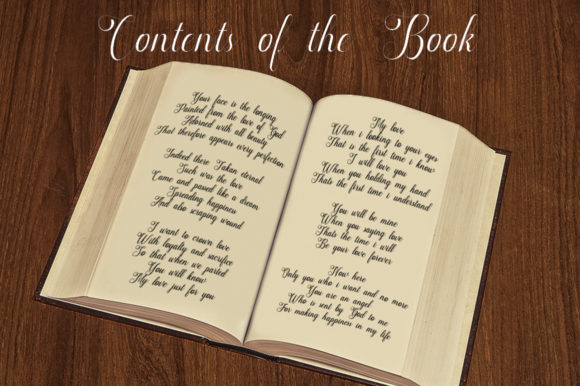 Contents of the Book
Your face is the longing
Painted from the love of God
Adorned with all beauty
That therefore appears every perfection
Indeed there Takan eternal
Such was the love
Came and passed like a dream
Spreading happiness
And also scraping wound
I want to crown love
With loyalty and sacrifice
So that when we parted
You will know
My love just for you
My love
When i looking to your eyes
That is the first time i know
I will love you
When you holding my hand
Thats the first time i understand
You will be mine
When you saying love
Thats the time i will
Be your love forever
Now here
Only you who i want and no more
You are an angel
Who is sent by God to me
For making happiness in my life